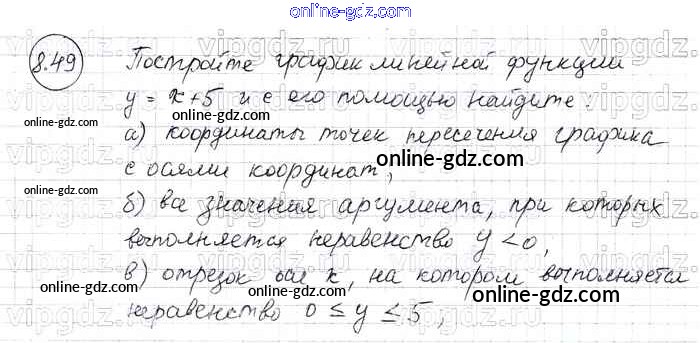 online-gdz.com
8.49 Постройте график линейной функции
y = x+5 и с его помощью найдите:
а) координаты точек пересечения графика
с осями координат;
б) все значения аргумента, при которых
выполняется неравенство y < 0,
в) отрезок оси x, на котором выполняется
неравенство 0 ≤ y ≤ 5,
online-gdz.com
online-gdz.com
online-gdz.com
online-gdz.com
online-gdz.com
online-gdz.com